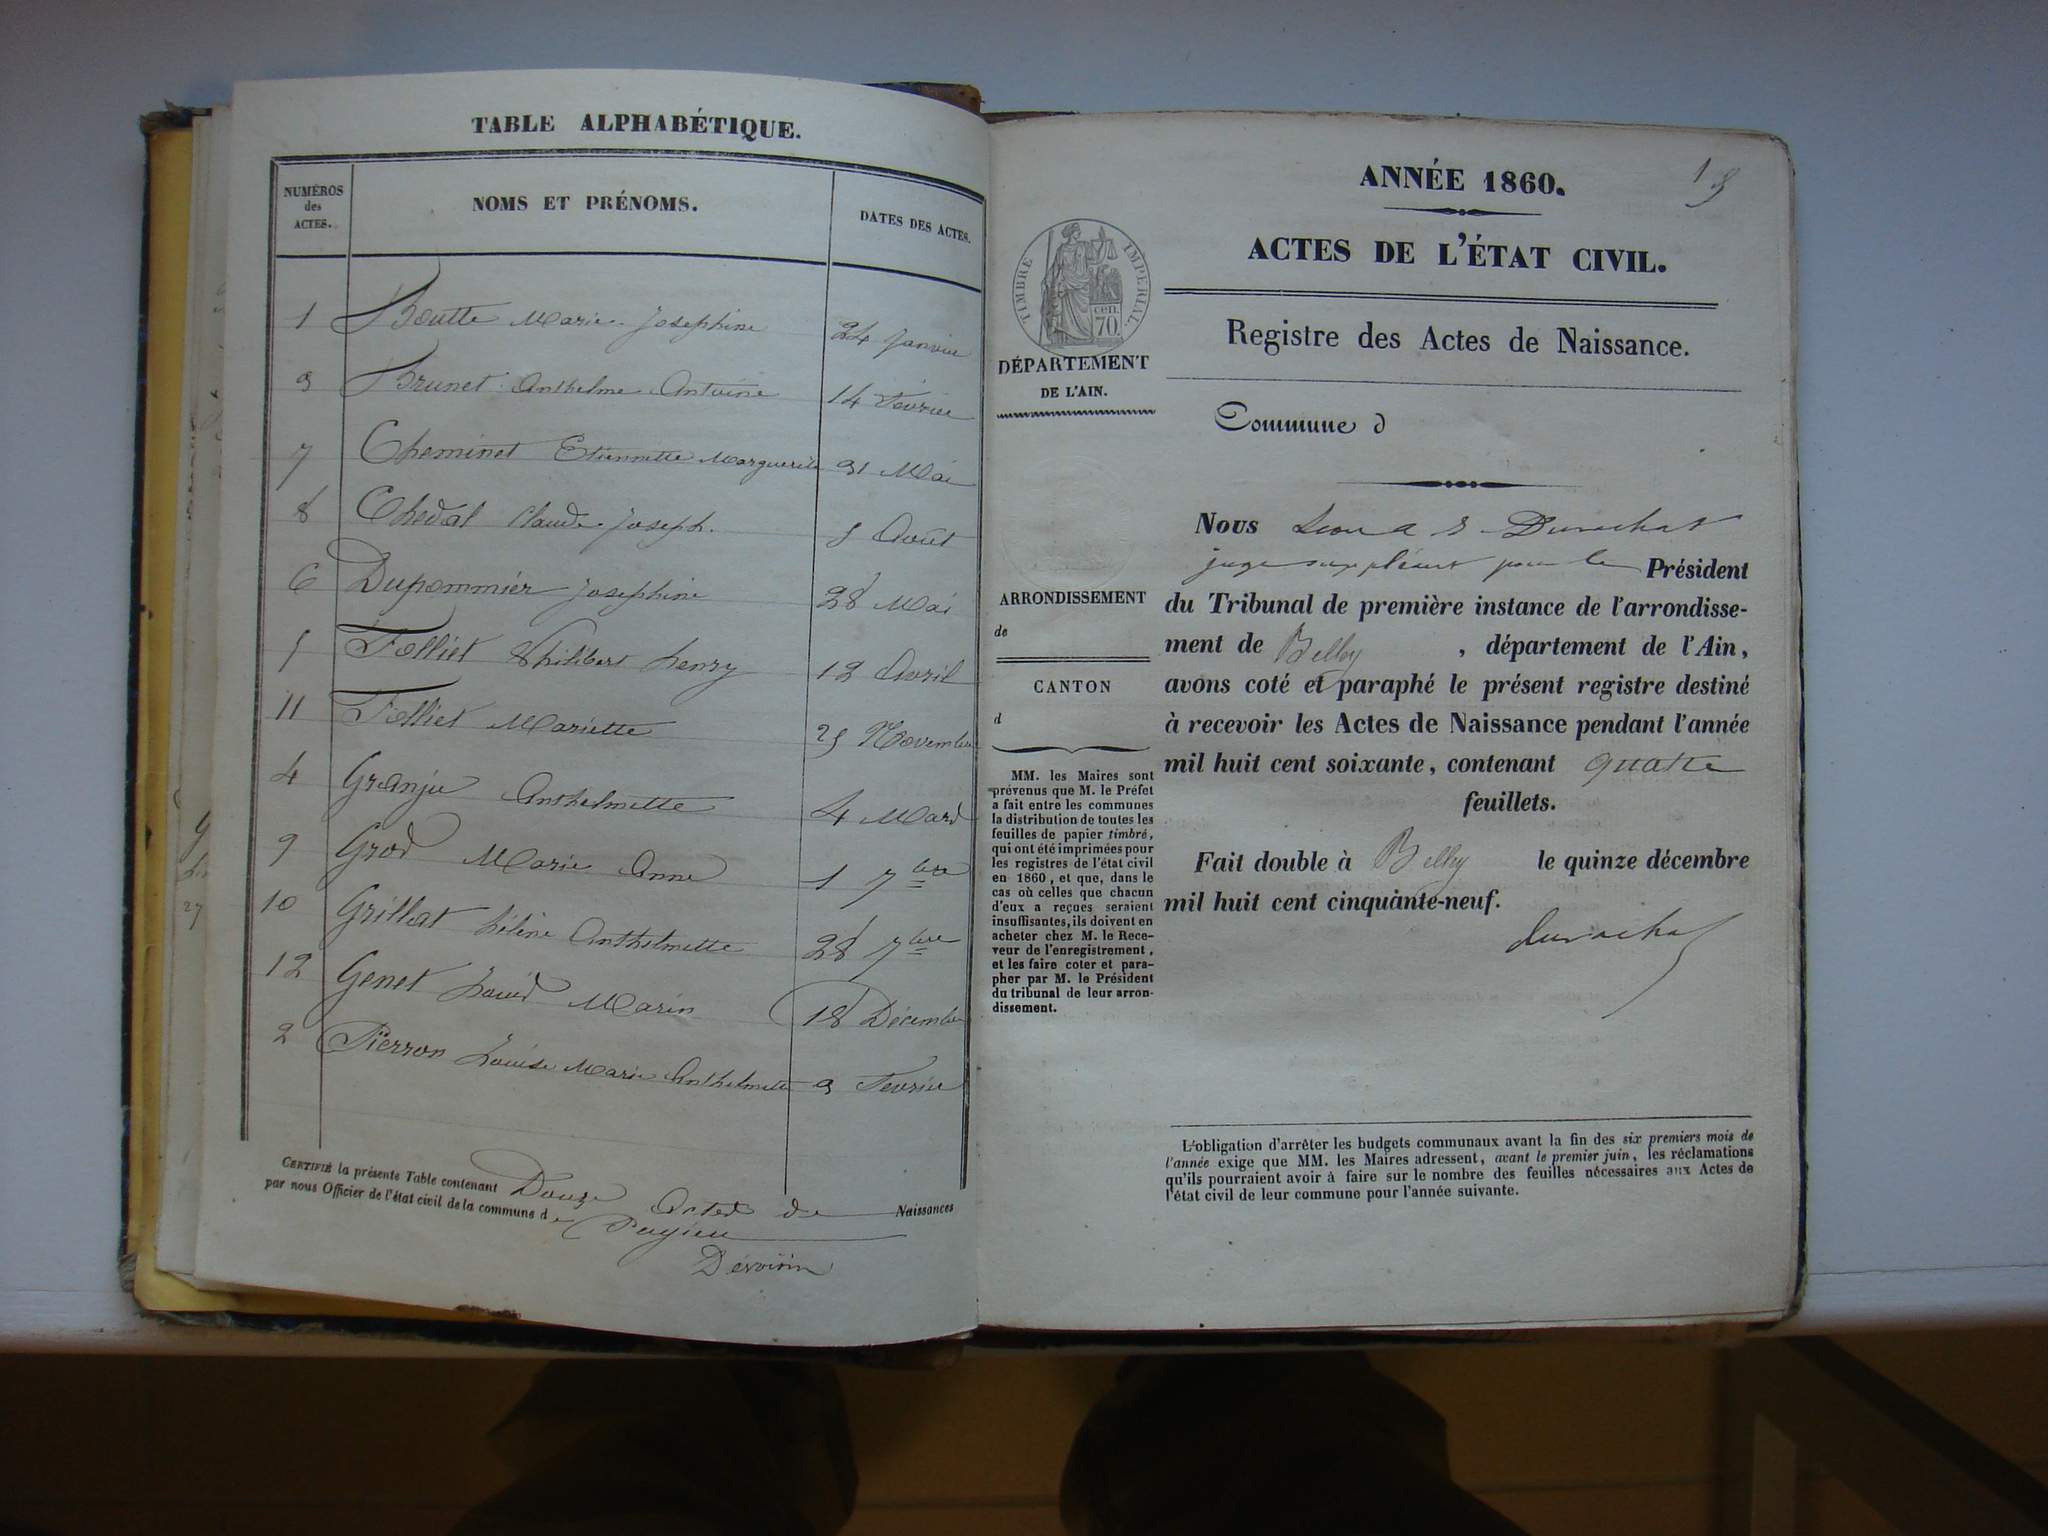 TABLE ALPHABÉTIQUE.
NUMÉROS des ACTES. NOMS ET PRÉNOMS. DATES DES ACTES.
1 Boutte Marie Josephine 24 Janvier
3 Brunet Anthelme Antoine 14 Février
7 Cheminet Etiennette Marguerite 31 Mai
8 Chedal Claude Joseph. 5 Août
6 Dupommier Josephine 28 Mai
5 Folliet Philibert henry 12 Avril
11 Folliet Mariette 25 Novembre
4 Granju Anthelmette 4 Mars
9 Grod Marie Anne 1 7bre
10 Grillat hélène Anthelmette 28 7bre
12 Genet Louis Marin 18 Décembre
2 Pierron Louise Marie Anthelmette 3 Février
CERTIFIÉ la présente Table contenant Douze Actes de Naissances
par nous Officier de l'état civil de la commune de Peyrieu
ANNÉE 1860.
ACTES DE L'ÉTAT CIVIL.
TIMBRE IMPERIAL.
cen.
70.
DÉPARTEMENT
DE L'AIN.
Registre des Actes de Naissance.
Commune d
Nous Durochat
juge suppléant pour le Président
du Tribunal de première instance de l'arrondisse-
ment de Belley , département de l'Ain,
avons coté et paraphé le présent registre destiné
à recevoir les Actes de Naissance pendant l'année
mil huit cent soixante, contenant quatre
feuillets.
Fait double à Belley le quinze décembre
mil huit cent cinquante-neuf.
Durochat
ARRONDISSEMENT
de
CANTON
d
MM. les Maires sont
prévenus que M. le Préfet
a fait entre les communes
la distribution de toutes les
feuilles de papier timbré,
qui ont été imprimées pour
les registres de l'état civil
en 1860, et que, dans le
cas où celles que chacun
d'eux a reçues seraient
insuffisantes, ils doivent en
acheter chez M. le Rece-
veur de l'enregistrement,
et les faire coter et para-
pher par M. le Président
du tribunal de leur arron-
dissement.
L'obligation d'arrêter les budgets communaux avant la fin des six premiers mois de
l'année exige que MM. les Maires adressent, avant le premier juin, les réclamations
qu'ils pourraient avoir à faire sur le nombre des feuilles nécessaires aux Actes de
l'état civil de leur commune pour l'année suivante.